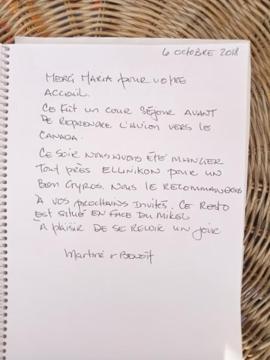 6 OCTOBRE 2018
MERCI MARIA POUR VOTRE
ACCUEIL.
CE FUT UN COUR SÉJOUR AVANT
DE REPRENDRE L'AVION VERS LE
CANADA.
CE SOIR NOUS AVONS ÉTÉ MANGER
TOUT PRÈS ELLINIKON POUR UN
BON GYROS. NOUS LE RECOMMANDONS
À VOS PROCHAINS INVITÉS. CE RESTO
EST SITUÉ EN FACE DU MIKEL
À PLAISIR DE SE REVOIR UN JOUR
MARTINE & BENOÎT